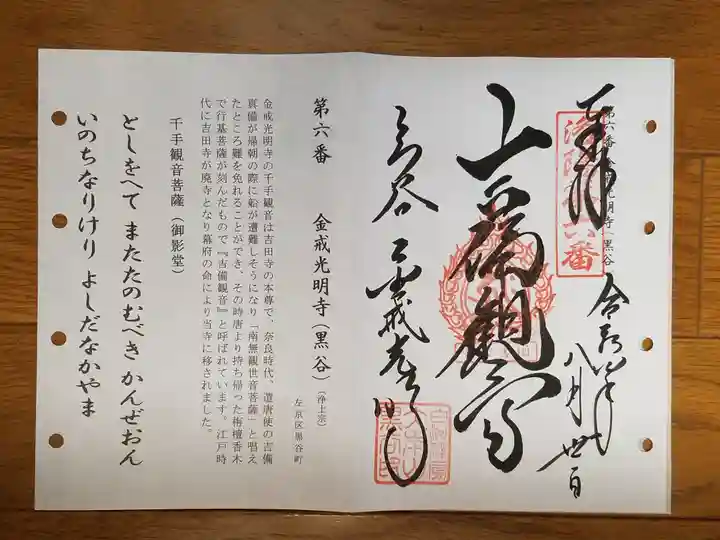 奉拝
第六番 金戒光明寺(黒谷)
洛陽第六番
八月
吉備観音
黒谷 金戒光明寺
第六番 金戒光明寺(黒谷)(浄土宗)
左京区黒谷町
金戒光明寺の千手観音は吉田寺の本尊で、奈良時代、遣唐使の吉備
真備が帰朝の際に船が遭難しそうになり「南無観世音菩薩」と唱え
たところ難を免れることができ、その時唐より持ち帰った栴檀香木
で行基菩薩が刻んだもので『吉備観音』と呼ばれています。江戸時
代に吉田寺が廃寺となり幕府の命により当寺に移されました。
千手観音菩薩(御影堂)
としをへて またたのむべき かんぜおん
いのちなりけり よしだなかやま